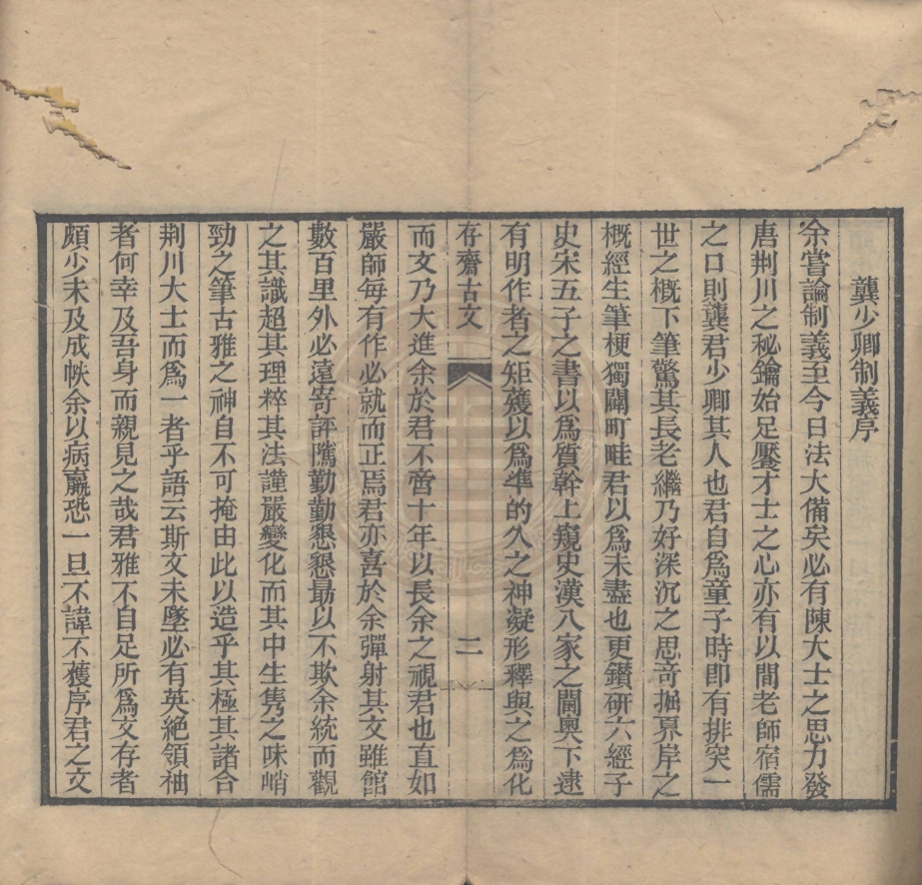 龔少卿制義序
余嘗論制義至今日法大備矣必有陳大士之思力發
唐荆川之秘鑰始足饜才士之心亦有以間老師宿儒
之口則龔君少卿其人也君自爲童子時即有排突一
世之概下筆驚其長老繼乃好深沉之思奇掘夐岸之
概經生筆梗獨闢町畦君以爲未盡也更鑽研六經子
史宋五子之書以爲質幹上窺史漢八家之閫奧下逮
有明作者之矩矱以爲準的久之神凝形釋與之爲化
存齋古文
二
而文乃大進余於君不啻十年以長余之視君也直如
嚴師每有作必就而正焉君亦喜於余彈射其文雖館
數百里外必遠寄評隲勤勤懇懇勗以不欺余統而觀
之其識超其理粹其法謹嚴變化而其中生雋之味峭
勁之筆古雅之神自不可掩由此以造乎其極其諸合
荆川大士而爲一者乎語云斯文未墜必有英絶領袖
者何幸及吾身而親見之哉君雅不自足所爲文存者
頗少未及成帙余以病羸恐一旦不諱不獲序君之文